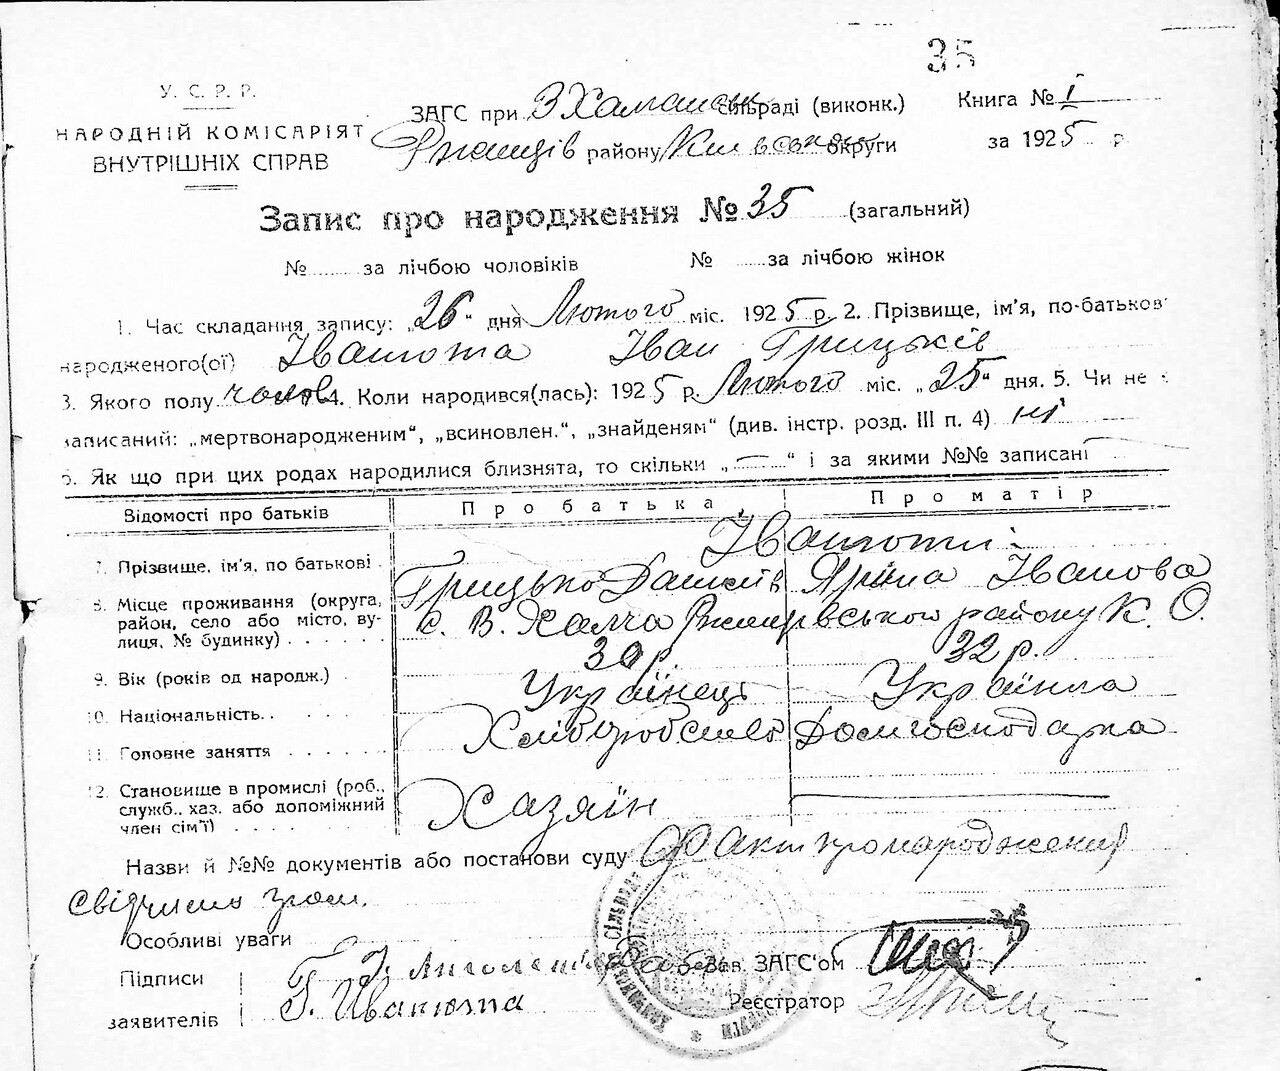 35
У. С. Р. Р.
НАРОДНІЙ КОМІСАРІЯТ
ВНУТРІШНІХ СПРАВ
ЗАГС при В Халчанськ сільраді (виконк.) Книга № I
Ржищів району Київської округи за 1925 р.
Запис про народження № 35 (загальний)
№ за лічбою чоловіків № за лічбою жінок
1. Час складання запису: „26“ дня Лютого міс. 1925 р. 2. Прізвище, ім'я, по-батьков
народженого(ої) Іванюта Іван Грицьків
3. Якого полу чолов 4. Коли народився(лась): 1925 р. Лютого міс. „25“ дня. 5. Чи не
записаний: „мертвонародженим“, „всиновлен.“, „знайденям“ (див. інстр. розд. III п. 4) ні
6. Як що при цих родах народилися близнята, то скільки „—“ і за якими №№ записані
Відомості про батьків Про батька Про матір
Іванюти
7. Прізвище, ім'я, по батькові Грицько Ярина Іванова
8. Місце проживання (округа, район, село або місто, вулиця, № будинку) с. В. Халча Ржищівського району К. О.
9. Вік (років од народж.) 30 р. 32 р.
10. Національність Українець Українка
11. Головне заняття Хліборобство Домгосподарка
12. Становище в промислі (роб., служб., хаз. або допоміжний член сім'ї) Хазяїн
Назви й №№ документів або постанови суду Факт про народження
свідчимо
Особливі уваги
Підписи
заявителів Г. Иванюта
Зав. ЗАГС'ом
Реєстратор